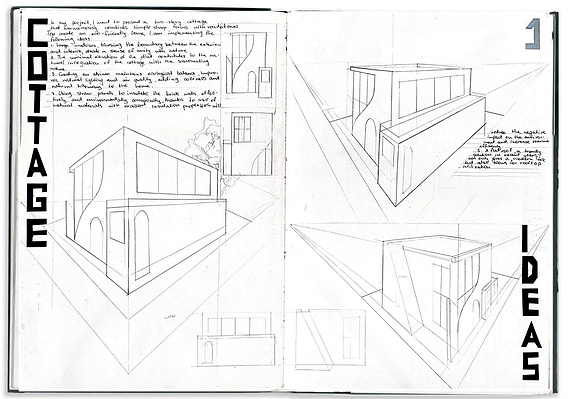 COTTAGE
In my project, I want to present a two-story cottage
that harmoniously combines simple shapes forms with
To create an eco-friendly home, I am implementing the
following ideas:
1. Large windows blurring the boundary between the exterior
and interior, create a sense of unity with nature.
2. The minimal elevation of the plot contributes to the
integration of the cottage with the surrounding
nature.
3. Creating an atrium maintains ecological balance, impro-
ves natural lighting and air quality, adding coziness and
natural to the home.
4. Using straw panels to insulate the brick walls effec-
tively and environmentally consciously, thanks to use of
natural materials with excellent insulation properties will
1
reduce the negative
impact on the
and increase thermal
efficiency.
5. A flat roof, a trendy
solution in recent years,
not only gives a modern look
but also allows for rooftop
IDEAS